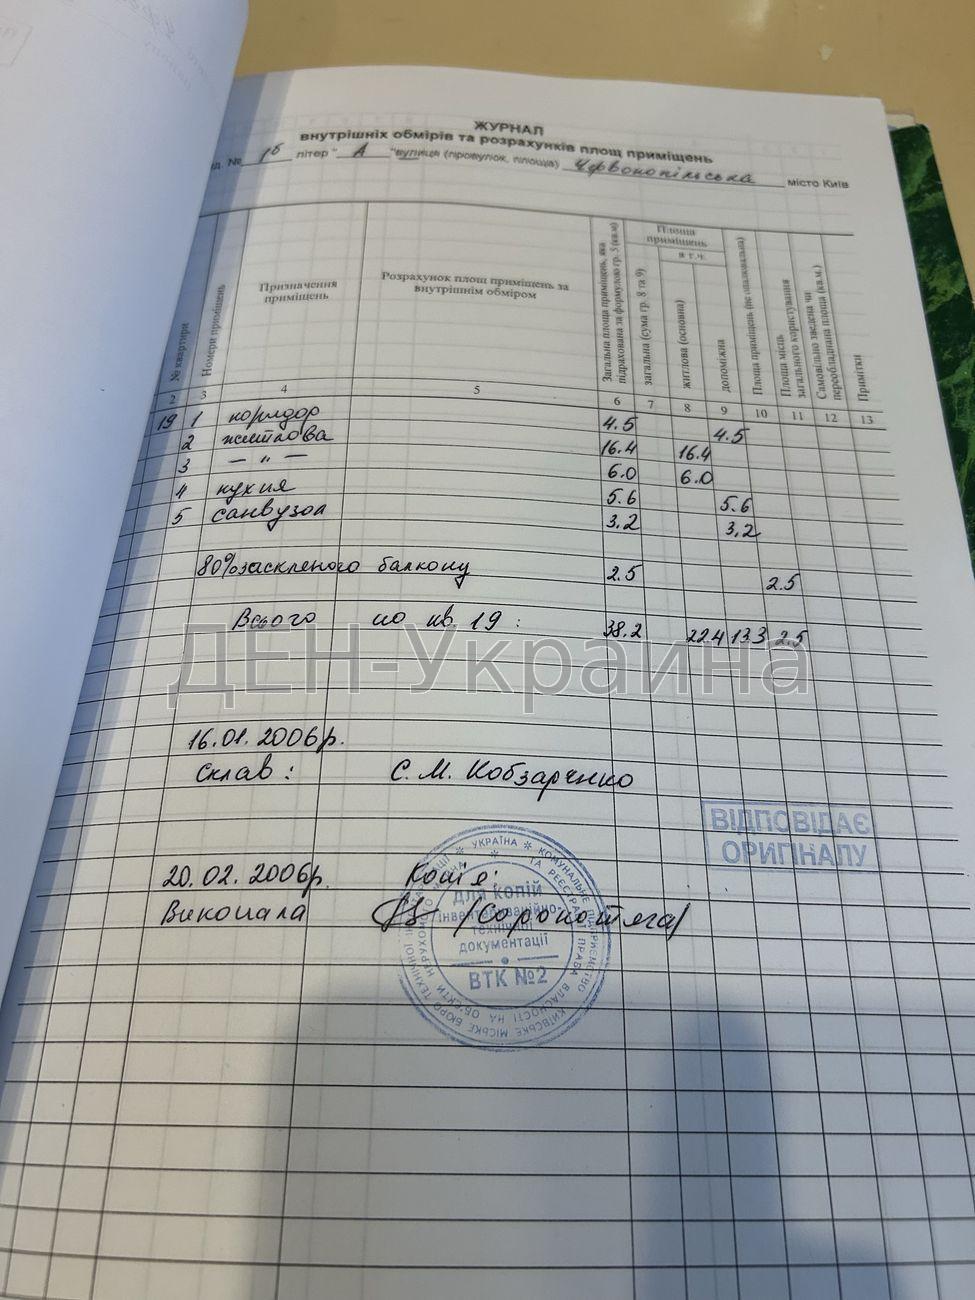 ЖУРНАЛ
внутрішніх обмірів та розрахунків площ приміщень
д. № 15 літер "А" вулиця (провулок, площа) Червонопільська місто Київ
№ квартири
Номери приміщень
Призначення приміщень
Розрахунок площ приміщень за внутрішнім обміром
Загальна площа приміщень, яка підрахована за формулою гр. 5 (кв.м)
Площа приміщень
в т.ч.
загальна (сума гр. 8 та 9)
житлова (основна)
допоміжна
Площа приміщень (не опалювальна)
Площа місць загального користування
Самовільно зведена чи переобладнана площа (кв.м.)
Примітки
2 3 4 5 6 7 8 9 10 11 12 13
19 1 коридор 4.5 4.5
2 житлова 16.4 16.4
3 — " — 6.0 6.0
4 кухня 5.6 5.6
5 санвузол 3.2 3.2
80% заскленого балкону 2.5 2.5
Всього по кв. 19: 38.2 22.4 13.3 2.5
ДЕН-Украина
16.01.2006р.
Склав: С. М. Кобзаренко
ВІДПОВІДАЄ
ОРИГІНАЛУ
20.02.2006р. Копія:
Виконала /Сорокотяга/
УКРАЇНА * КОМУНАЛЬНЕ ПІДПРИЄМСТВО * КИЇВСЬКЕ МІСЬКЕ БЮРО ТЕХНІЧНОЇ ІНВЕНТАРИЗАЦІЇ
ТА РЕЄСТРАЦІЇ ПРАВА ВЛАСНОСТІ НА ОБ'ЄКТИ НЕРУХОМОГО МАЙНА
для копій
інвентаризаційно-
технічної
документації
ВТК №2